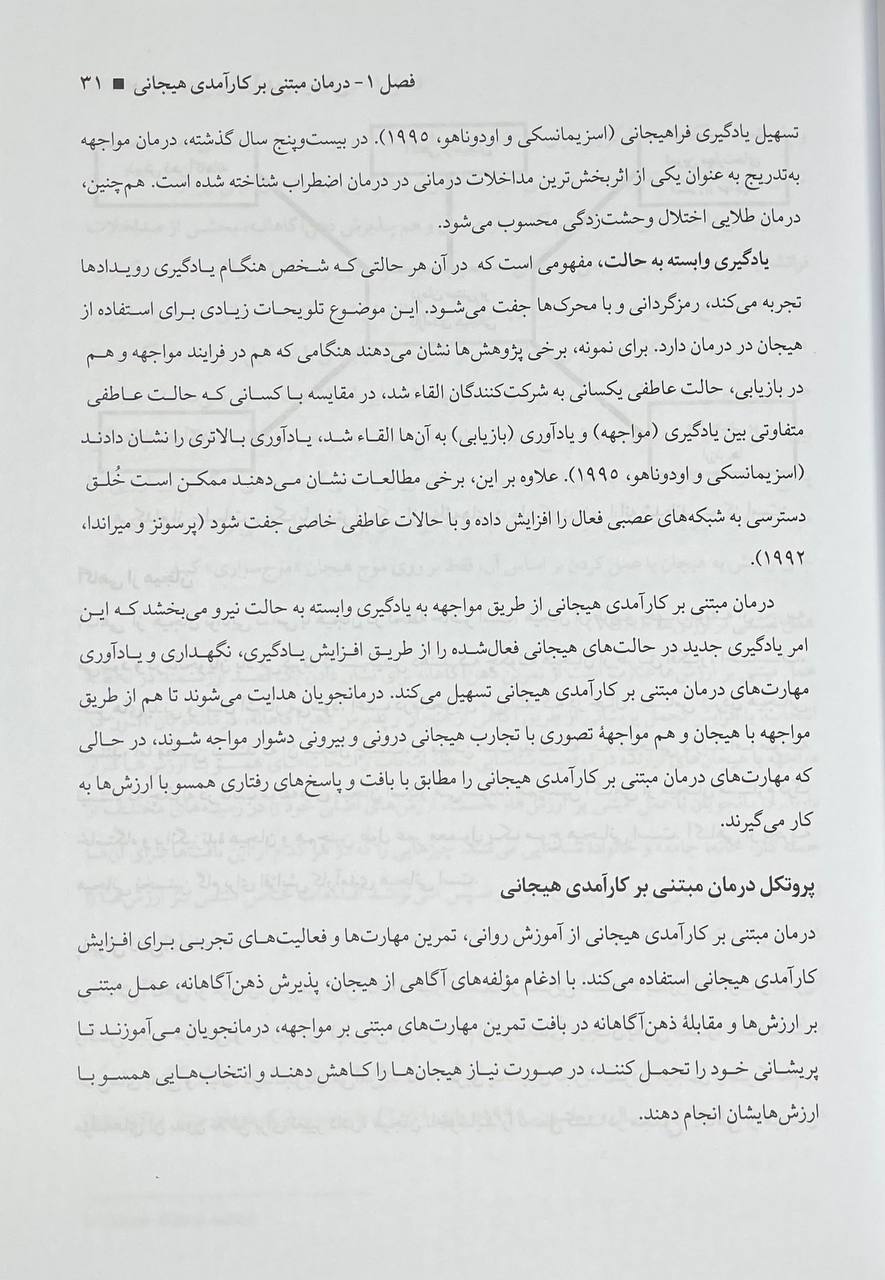 فصل ۱- درمان مبتنی بر کارآمدی هیجانی ■ ۳۱
تسهیل یادگیری فراهیجانی (اسزیمانسکی و اودوناهو، ۱۹۹۵). در بیست‌وپنج سال گذشته، درمان مواجهه
به‌تدریج به عنوان یکی از اثربخش‌ترین مداخلات درمانی در درمان اضطراب شناخته شده است. هم‌چنین،
درمان طلایی اختلال وحشت‌زدگی محسوب می‌شود.
یادگیری وابسته به حالت، مفهومی است که در آن هر حالتی که شخص هنگام یادگیری رویدادها
تجربه می‌کند، رمزگردانی و با محرک‌ها جفت می‌شود. این موضوع تلویحات زیادی برای استفاده از
هیجان در درمان دارد. برای نمونه، برخی پژوهش‌ها نشان می‌دهند هنگامی که هم در فرایند مواجهه و هم
در بازیابی، حالت عاطفی یکسانی به شرکت‌کنندگان القاء شد، در مقایسه با کسانی که حالت عاطفی
متفاوتی بین یادگیری (مواجهه) و یادآوری (بازیابی) به آن‌ها القاء شد، یادآوری بالاتری را نشان دادند
(اسزیمانسکی و اودوناهو، ۱۹۹۵). علاوه بر این، برخی مطالعات نشان می‌دهند ممکن است خُلق
دسترسی به شبکه‌های عصبی فعال را افزایش داده و با حالات عاطفی خاصی جفت شود (پرسونز و میراندا،
۱۹۹۲).
درمان مبتنی بر کارآمدی هیجانی از طریق مواجهه به یادگیری وابسته به حالت نیرو می‌بخشد که این
امر یادگیری جدید در حالت‌های هیجانی فعال‌شده را از طریق افزایش یادگیری، نگهداری و یادآوری
مهارت‌های درمان مبتنی بر کارآمدی هیجانی تسهیل می‌کند. درمانجویان هدایت می‌شوند تا هم از طریق
مواجهه با هیجان و هم مواجههٔ تصوری با تجارب هیجانی درونی و بیرونی دشوار مواجه شوند، در حالی
که مهارت‌های درمان مبتنی بر کارآمدی هیجانی را مطابق با بافت و پاسخ‌های رفتاری همسو با ارزش‌ها به
کار می‌گیرند.
پروتکل درمان مبتنی بر کارآمدی هیجانی
درمان مبتنی بر کارآمدی هیجانی از آموزش روانی، تمرین مهارت‌ها و فعالیت‌های تجربی برای افزایش
کارآمدی هیجانی استفاده می‌کند. با ادغام مؤلفه‌های آگاهی از هیجان، پذیرش ذهن‌آگاهانه، عمل مبتنی
بر ارزش‌ها و مقابلهٔ ذهن‌آگاهانه در بافت تمرین مهارت‌های مبتنی بر مواجهه، درمانجویان می‌آموزند تا
پریشانی خود را تحمل کنند، در صورت نیاز هیجان‌ها را کاهش دهند و انتخاب‌هایی همسو با
ارزش‌هایشان انجام دهند.